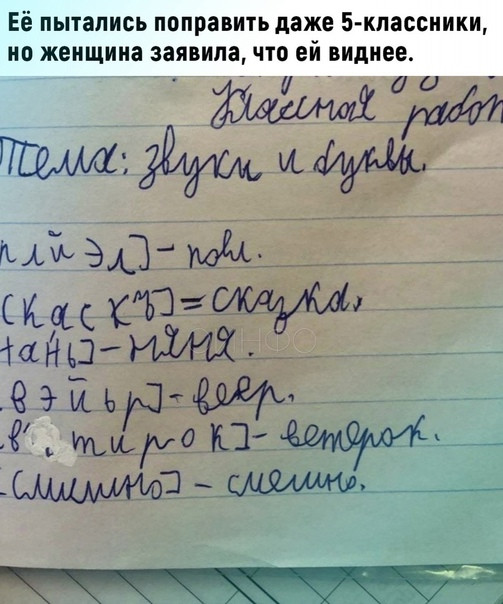 Её пытались поправить даже 5-классники,
но женщина заявила, что ей виднее.
Классная работ
Тема: звуки и буквы.
плйэл] - повл.
[каскъ] = сказка.
[наньﾠ] - няня.
вэйьр] - веяр.
в', тирок] - ветярок.
[смишно] - смешно.